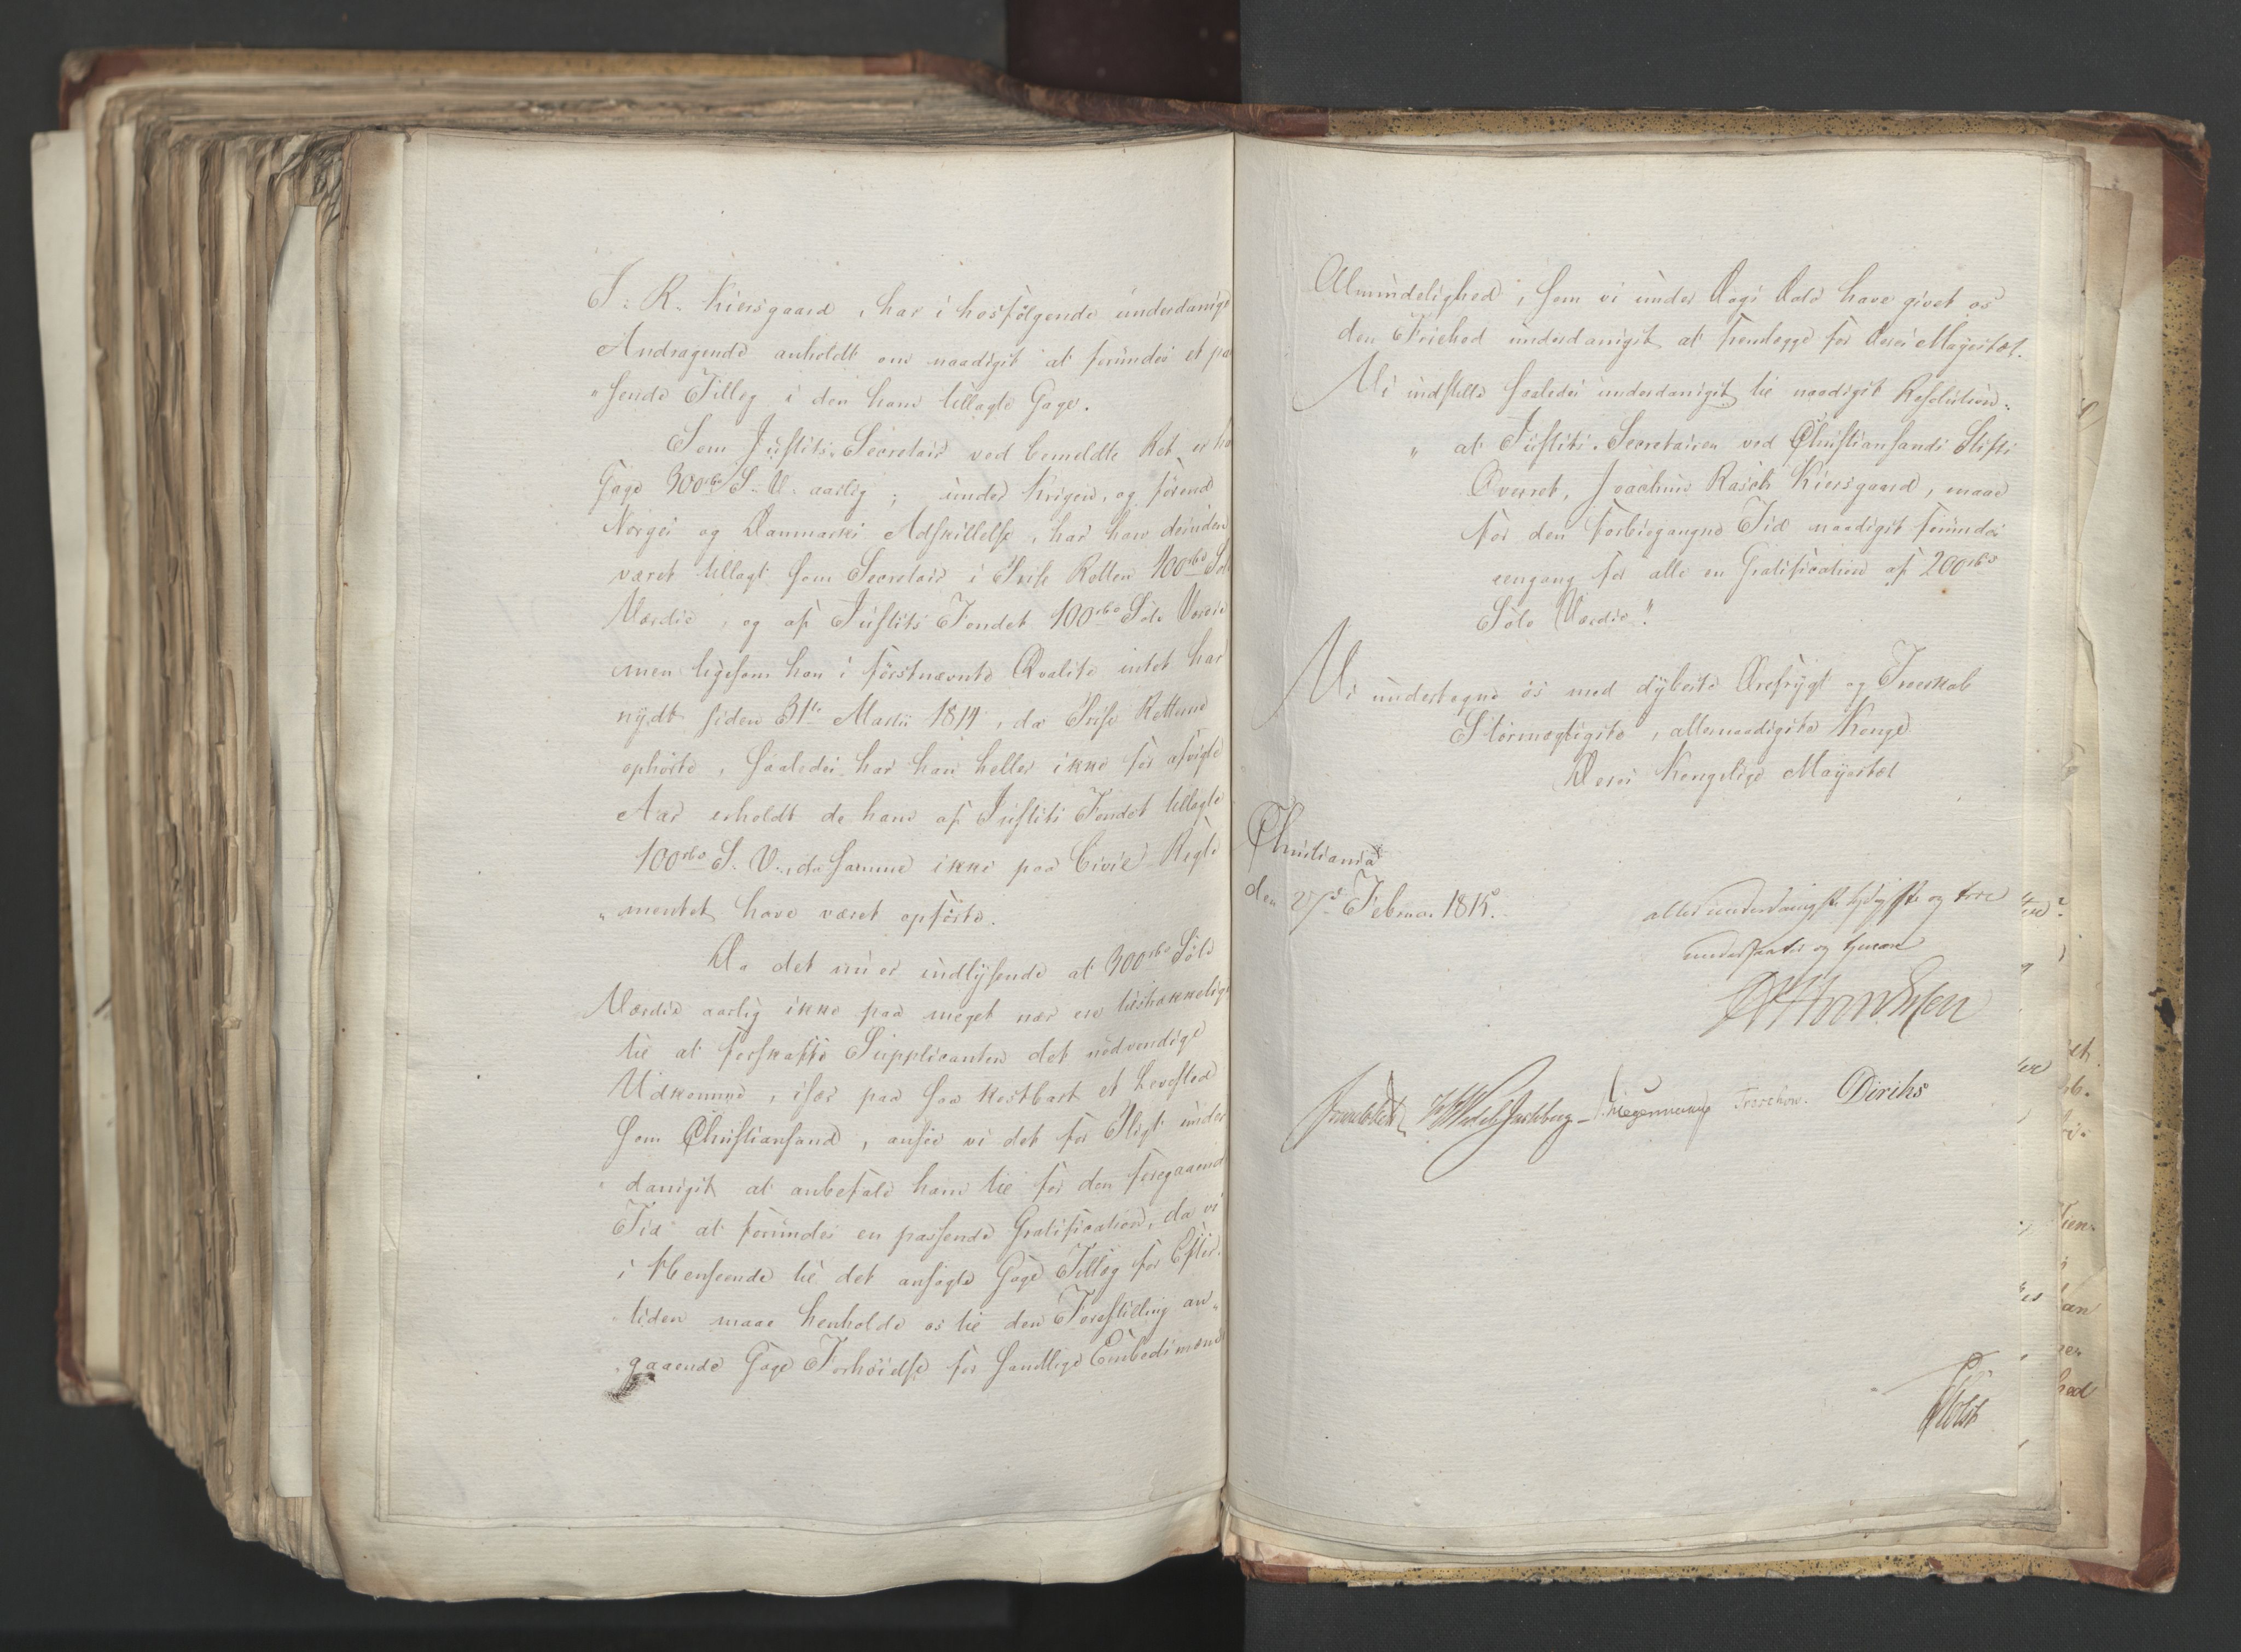 J. R. Kiersgaard, har i hosfølgende underdanigt
Andragende anholdt om naadigst at forundes et pa
"sende Tillæg i den ham tillagte Gage.
Som Justits-Secretair ved bemeldte Ret er
Gage 300 rbd S. V. aarlig; under Krigen, og førend
Norges og Danmarks Adskillelse, har ham desuden
været tillagt som Secretair i Prise Retten 100 rbd Sølv
Værdie, og af Justits Fondet 100 rbd Sølv Værdie
men ligesom han i førstnævnte Qvalite intet har
nydt siden 31te Martii 1814, da Prise Retterne
ophørte, saaledes har han heller ikke for afvigte
Aar erholdt de ham af Justits Fondet tillagte
100 rbd S. V., da samme ikke paa Civil Regle
"mentet have været opførte.
Da det nu er indlysende at 300 rbd Sølv
Værdie aarlig ikke paa meget nær er tilstrækkelige
til at forskaffe Supplicanten det nødvendige
Udkomme, især paa saa kostbart et Levested
som Christiansand, ansee vi det for Pligt under
"danigst at anbefale ham til for den foregaaende
Tid at forundes en passende Gratification, da vi
i Henseende til det ansøgte Gage Tillæg for Efter-
tiden maae henholde os til den Forestilling an„
"gaaende Gage Forhøielse for samtlige Embedsmænd
Almindelighed, som vi under Dags Dato have givet os
den Friehed underdanigst at fremlægge for Deres Majestæt.
Vi indstille saaledes underdanigst til naadigst Resolution:
"at Justits-Secretairen ved Christiansands Stifts
Overret, Joachim Rasch Kiersgaard, maae
for den forbiegangne Tid naadigst forundes
eengang for alle en Gratification af 200 rbd
Sølv Værdie."
Vi undertegne os med dybeste Ærefrygt og Troeskab
Stormægtigste, allernaadigste Konge
Deres Kongelige Majestæt
Christiania
den 27d Februar 1815.
allerunderdanigste lydigste og troe
undersaatter og tienere
Sommerhielm Wedel Jarlsberg Hegermann Treschow. Diriks
Holst